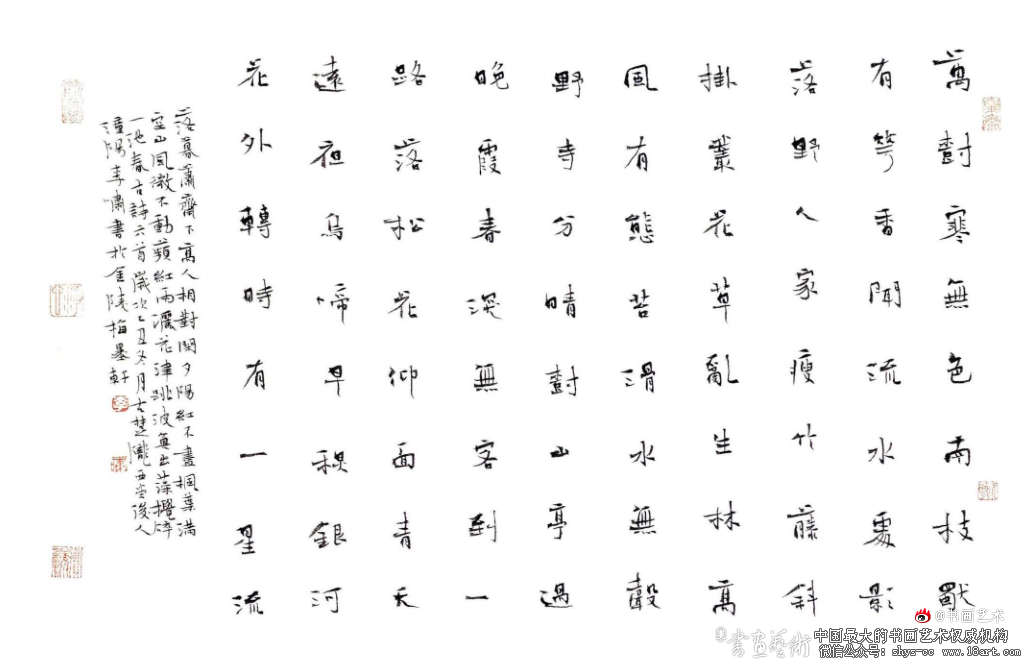 萬樹寒無色南枝獸
有花香聞流水處影
落野人家瘦竹藤斜
掛叢花草亂生林高
風有態苔滑水無聲
野寺分晴樹山亭過
晚霞春深無客到一
路落松花仰面青天
遠烏啼早秋銀河
花外轉時有一星流
落暮蕭齋下高人相對閒夕陽紅不盡桐葉滿
空山風微不動蘋紅雨灑花津跳波魚出藻攪碎
一池春古詩六首歲次乙丑冬月古楚隴西堂後人
潼陽李嘯書於金陵梅墨軒
@书画艺术
书画艺術
中国最大的书画艺术权威机构
微信公众号：shys-cc www.18art.com